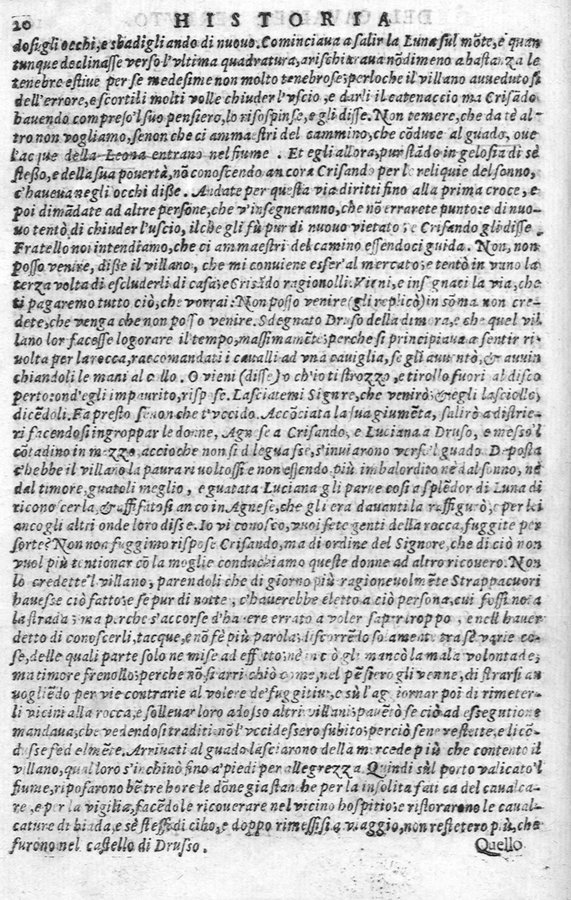 20 HISTORIA
dosi gli occhi, e sbadigliando di nuovo. Cominciaua a salir la Luna sul mõte, e quan
tunque declinasse verso l'vltima quadratura, arischiaraua nõdimeno abastanza le
tenebre estiue per se medesime non molto tenebrose; perloche il villano auueduto si
dell'errore, e scortili molti volle chiuder l'vscio, e darli il catenaccio ma Crisãdo
hauendo compreso'l suo pensiero, lo risospinse, e gli disse. Non temere, che da te al-
tro non vogliamo, senon che ci ammaestri del cammino, che cõduce al guado, oue
l'acque della Leona entrano nel fiume. Et egli allora, pur stãdo in gelosia di sè
stesso, e della sua pouertà, nõ conoscendo ancora Crisando per le reliquie del sonno,
c'haueua negli occhi disse. Andate per questa via diritti fino alla prima croce, e
poi dimãdate ad altre persone, che v'insegneranno, che nõ errarete punto: e di nuo-
uo tentò di chiuder l'vscio, il che gli fù pur di nuouo vietato; e Crisando gli disse.
Fratello noi intendiamo, che ci ammaestri del camino essendoci guida. Non, non
posso venire, disse il villano, che mi conuiene esser'al mercato: e tentò in vano la
terza volta di escluderli di casa: e Crisãdo ragionolli. Vieni, e insegnaci la via, che
ti pagaremo tutto ciò, che vorrai: Non posso venire (gli replicò) in sõma non cre-
dete, che venga che non posso venire. Sdegnato Druso della dimora, e che quel vil
lano lor facesse logorare il tempo, massimamẽte; perche si principiaua a sentir ri-
uolta per la rocca, raccomandati i caualli ad vna cauiglia, se gli auuentò, & auuin
chiandoli le mani al collo. O vieni (disse) o ch'io ti strozzo, e tirollo fuori al disco
perto: ond'egli impaurito, rispose. Lasciatemi Signore, che venirò: & egli lasciollo,
dicẽdoli. Fa presto senon che t'vccido. Accõciata la sua giumẽta, salirò a distrie-
ri facendosi ingroppar le donne, Agnese a Crisando, e Luciana a Druso, e messo'l
cõtadino in mezzo, accioche non si dileguasse, s'inuiarono verso'l guado. Deposta
c'hebbe il villano la paura riuoltossi e non essendo più imbalordito nè dal sonno, nè
dal timore, guatoli meglio, e guatata Luciana gli parue cosi a splẽdor di Luna di
riconoscerla, & affissatosi anco in Agnese, che gli era dauanti la raffigurò, e per lei
anco gli altri onde loro disse. Io vi conosco, vuoi sete genti della rocca, fuggite per
sorte? Non non fuggimo rispose Crisando, ma di ordine del Signore, che di ciò non
vuol più tentionar cõ la moglie conduchiamo queste donne ad altro ricouero. Non
lo credette'l villano, parendoli che di giorno più ragioneuolmẽte Strappacuori
hauesse ciò fatto; e se pur di notte, c'hauerebbe eletto a ciò persona, cui fosse nota
la strada; ma perche s'accorse d'hauere errato a voler saper troppo, e nell'hauer
detto di conoscerli, tacque, e nõ fè più parola; discorrẽdo solamente tra sè varie co-
se, delle quali parte solo ne mise ad effetto; nè in ciò gli mancò la mala volontade;
ma timore frenollo; perche nõ si arrischiò come, nel pẽsiero gli venne, di strarsi an
uogliẽdo per vie contrarie al volere de' fuggitiui, e sù l'aggiornar poi di rimeter-
li vicini alla rocca, e solleuar loro adosso altri villani; pauẽtò se ciò ad essegutione
mandaua; che vedendosi traditi nõ l'vccidessero subito; perciò sene restette, e li cõ-
dusse fedelmẽte. Arriuati al guado lasciarono della mercede più che contento il
villano, qual loro s'inchinò fino a' piedi per allegrezza. Quindi sul porto valicato'l
fiume, riposarono bẽ tre hore le dõne già stanche per la insolita fatica del caualca-
re, e per la vigilia, facẽdole ricouerare nel vicino hospitio; e ristorarono le caual-
cature di biada, e sè stessi di cibo, e doppo rimessisi a viaggio, non restetero più, che
furono nel castello di Drusso. Quello